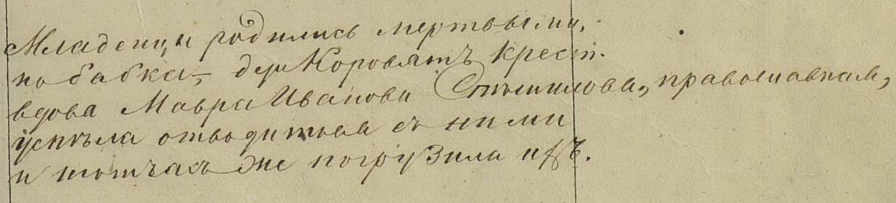 Младенцы родились мертвыми,
но бабка, дер. Коровятъ крест.
вдова Мавра Иванова православная,
успѣла отводиться съ ними
и тотчасъ же погрузила ихъ.